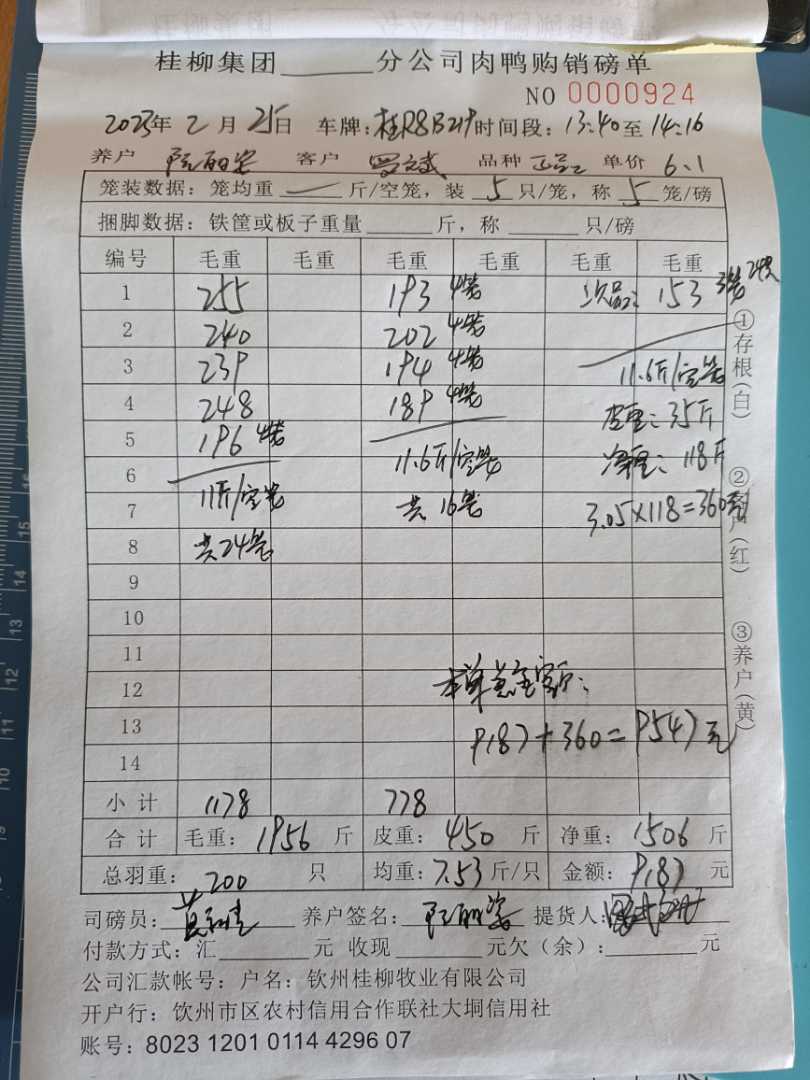 桂柳集团______分公司肉鸭购销磅单
NO 0000924
2023年 2月 25日 车牌: 桂R8B219 时间段: 13:40至 14:16
养户 阮丽姿 客户 罗文斌 品种 正品 单价 6.1
笼装数据: 笼均重 — 斤/空笼, 装 5 只/笼, 称 5 笼/磅
捆脚数据: 铁筐或板子重量______斤, 称______只/磅
编号 毛重 毛重 毛重 毛重 毛重 毛重
1 255 193 4笼 次品: 153 3笼 24只
2 240 202 4笼
3 239 194 4笼 11.6斤/空笼
4 248 189 4笼 皮重: 35斤
5 196 4笼
6 11斤/空笼 11.6斤/空笼 净重: 118斤
7 共16笼 3.05×118=360
8 共24笼
9
10
11
12 本单总金额:
13 9187+360=9547元
14
小计 1178 778
合计 毛重: 1956 斤 皮重: 450 斤 净重: 1506 斤
总羽重: 200 只 均重: 7.53 斤/只 金额: 9187 元
司磅员: 养户签名: 阮丽姿 提货人:
付款方式: 汇______元 收现______元欠(余):______元
公司汇款帐号: 户名: 钦州桂柳牧业有限公司
开户行: 饮州市区农村信用合作联社大垌信用社
账号: 8023 1201 0114 4296 07
①存根(白)
②客户(红)
③养户(黄)